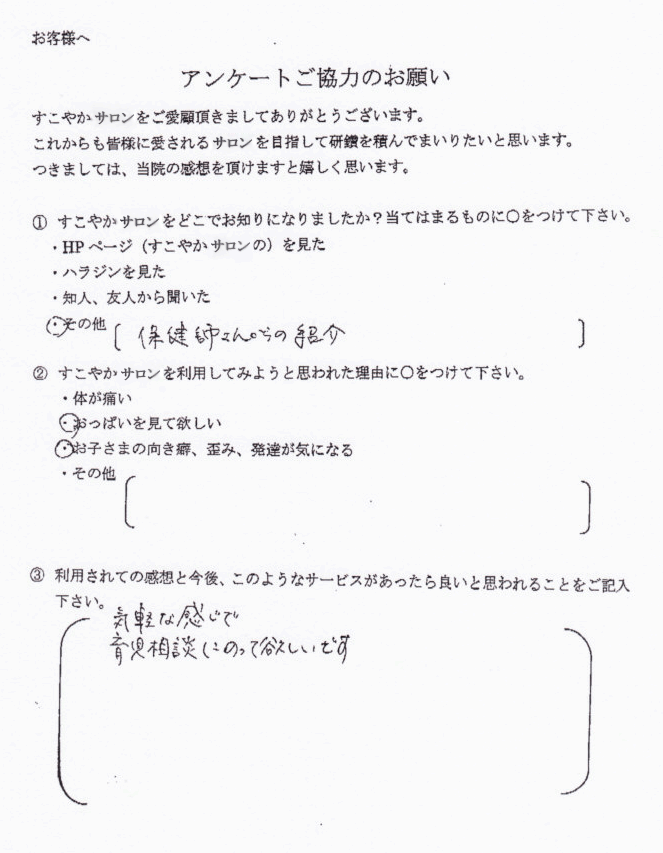 お客様へ
アンケートご協力のお願い
すこやかサロンをご愛顧頂きましてありがとうございます。
これからも皆様に愛されるサロンを目指して研鑽を積んでまいりたいと思います。
つきましては、当院の感想を頂けますと嬉しく思います。
① すこやかサロンをどこでお知りになりましたか?当てはまるものに○をつけて下さい。
・HPページ(すこやかサロンの)を見た
・ハラジンを見た
・知人、友人から聞いた
・その他 [ 保健師さんからの紹介 ]
② すこやかサロンを利用してみようと思われた理由に○をつけて下さい。
・体が痛い
・おっぱいを見て欲しい
・お子さまの向き癖、歪み、発達が気になる
・その他
③ 利用されての感想と今後、このようなサービスがあったら良いと思われることをご記入
下さい。
気軽な感じで
育児相談にのって欲しいです